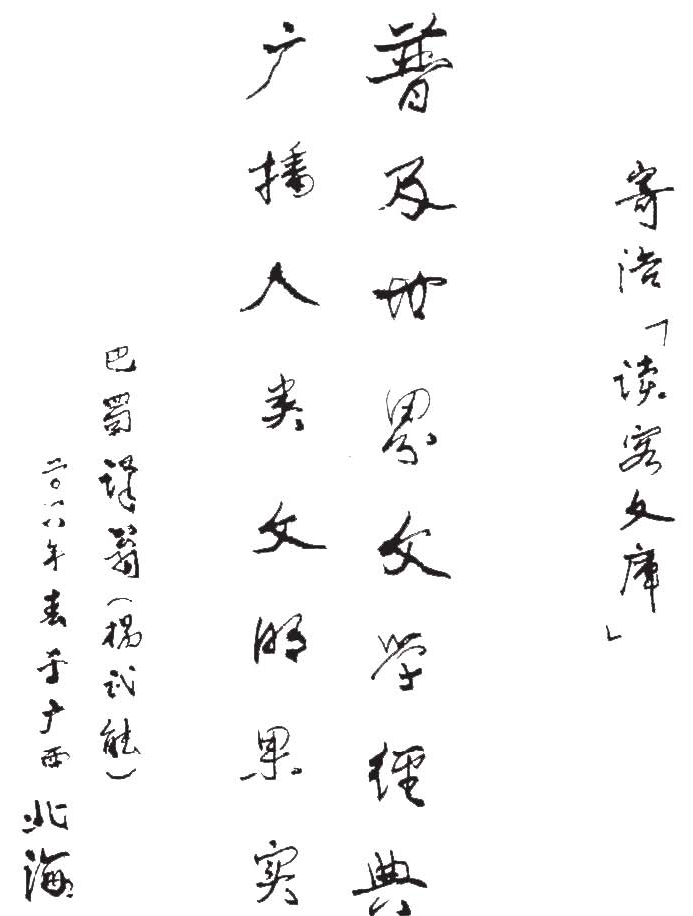 寄语「读客文库」
普及世界文学經典
广播人类文明果实
巴蜀译翁(杨武能)
二〇一八年春于广西北海